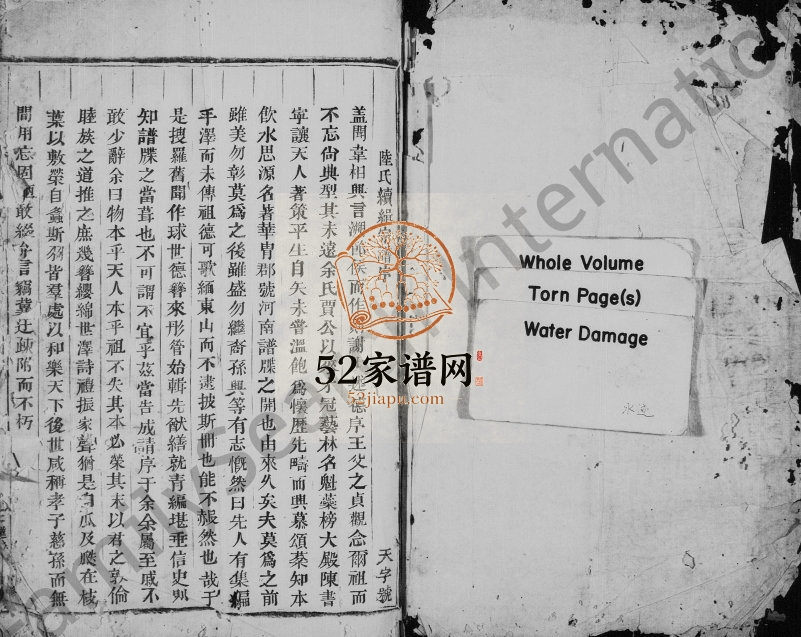 陸氏續緝宗譜序
天字號
蓋聞韋相興言溯 而作 謝 德序王父之貞觀念爾祖而
不忘尙典型其未遠余氏賈公以 冠藝林名魁蘂榜大殿陳書
寧讓天人著策平生自矢未嘗溫飽爲懷歷先疇而興慕頌蔡知本
飲水思源名著華胄郡號河南譜牒之開也由來久矣夫莫爲之前
雖美勿彰莫爲之後雖盛勿繼裔孫興等有志慨然曰先人有集編
手澤而未傳祖德可歌緬東山而不逮披斯冊也能不赧然也哉于
是搜羅舊聞作球世德簪來彤管始輯先猷繕就青編堪垂信史則
知譜牒之當葺也不可謂不宜乎茲當告成請序于余余屬至戚不
敢少辭余曰物本乎天人本乎祖不失其本必榮其末以君之敦倫
睦族之道推之庶幾簪纓綿世澤詩禮振家聲猶是 瓜及瓞在枝
葉以敷榮自螽斯 皆羣處以和樂天下後世咸稱孝子慈孫而無
間用忘固陋敢綴 言 冀 疎陋而不朽
Whole Volume
Torn Page(s)
Water Damage
水定
52家谱网
52jiapu.com
FamilySearch International